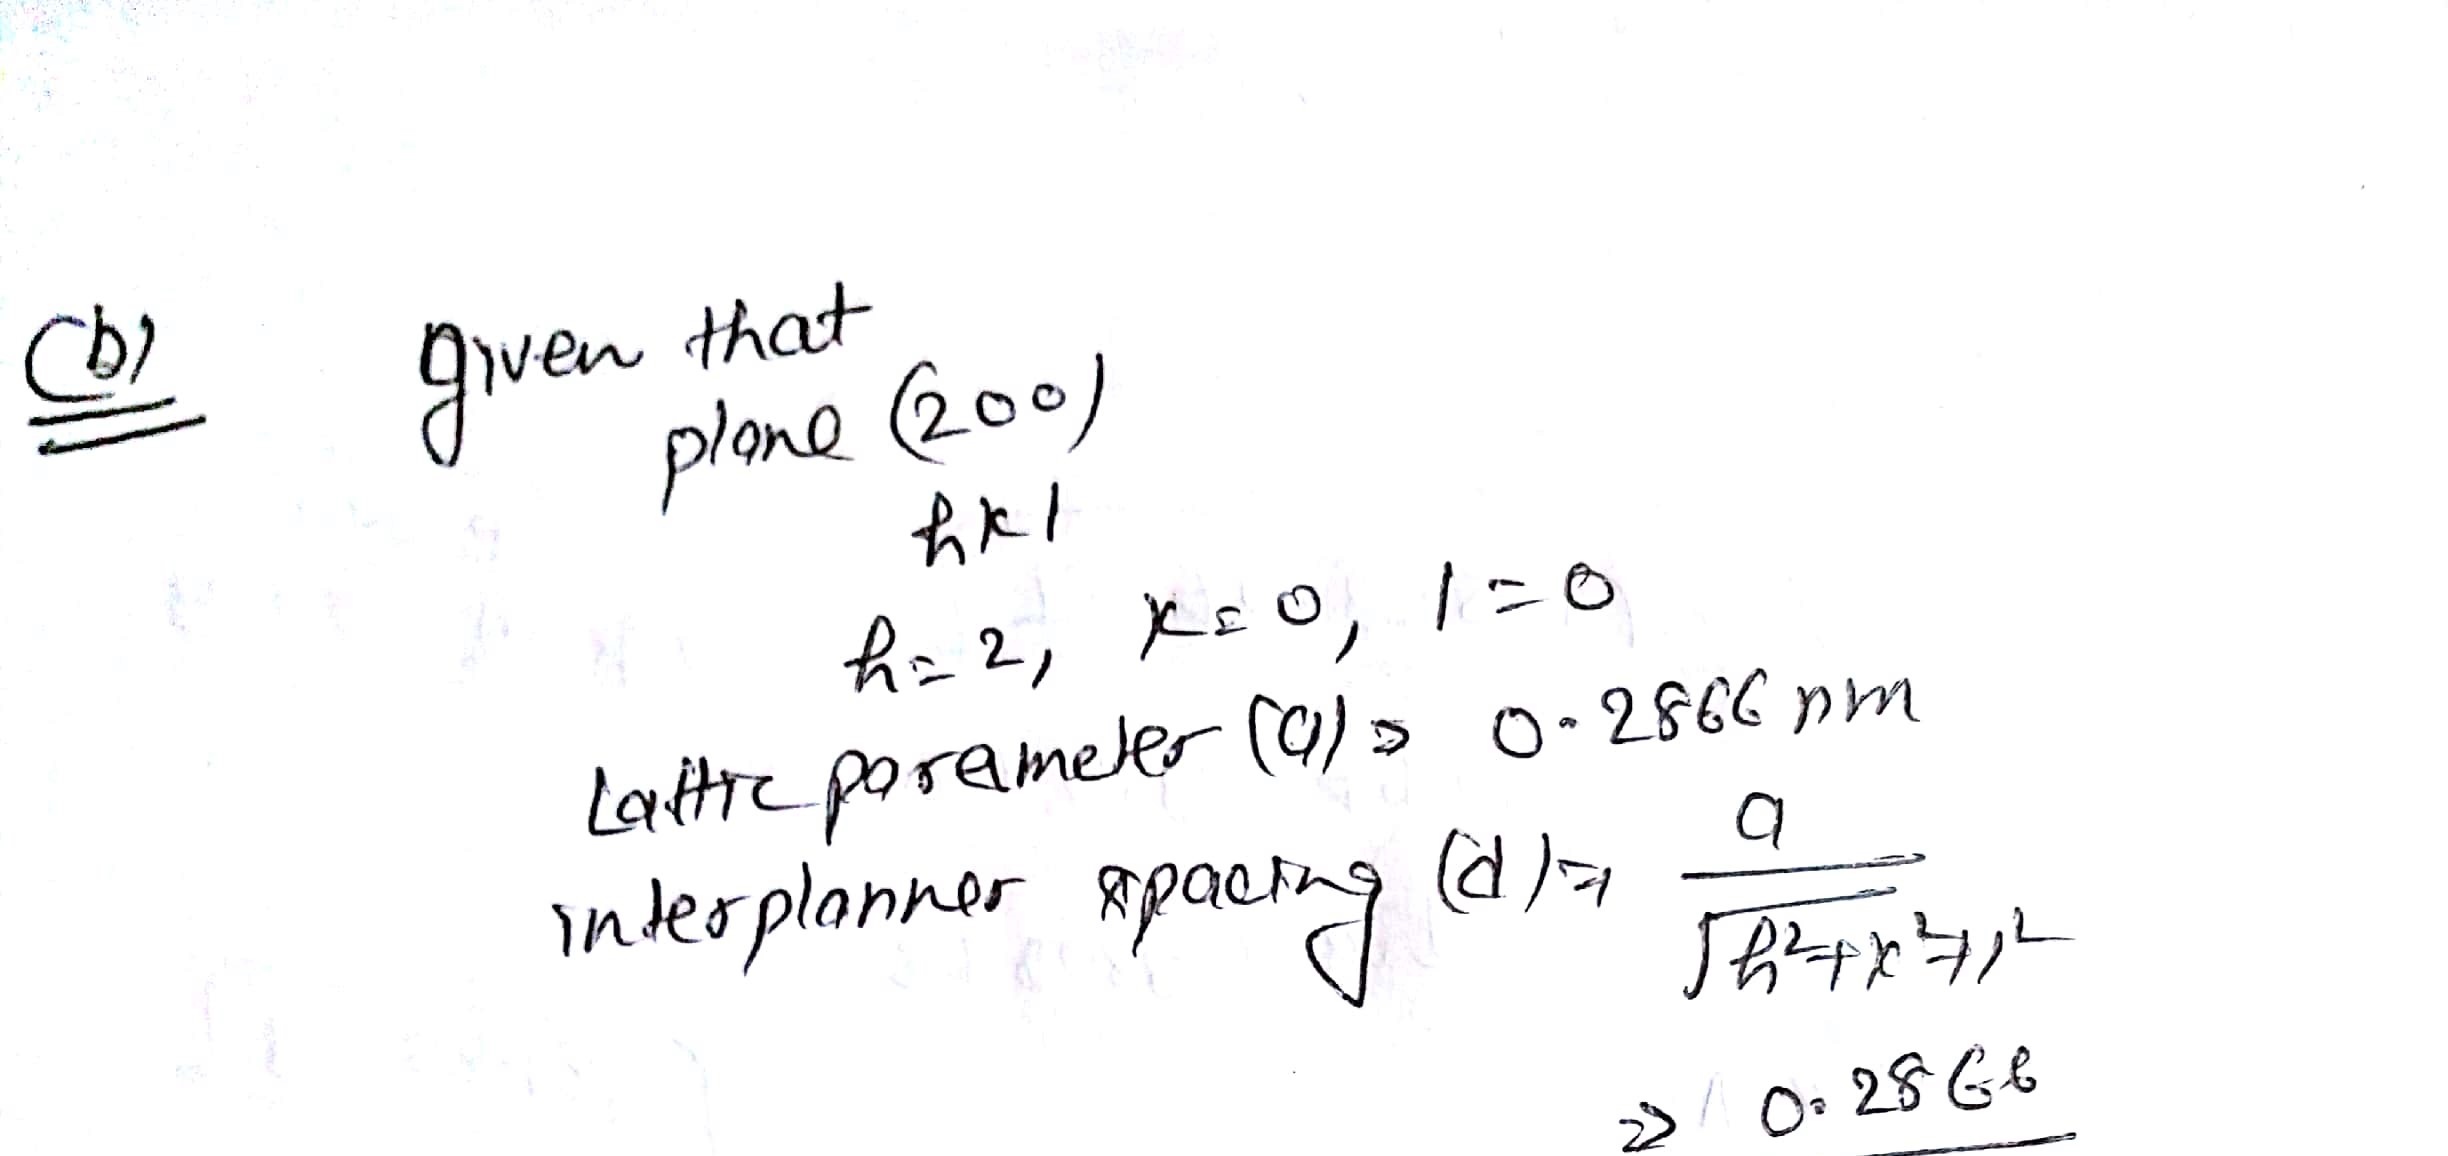 (b) given that
plane (200)
hkl
h=2, k=0, l=0
Lattic parameter (a) = 0.2866 nm
interplanner spacing (d) = a
√h²+k²+l²
⇒ 0.2866